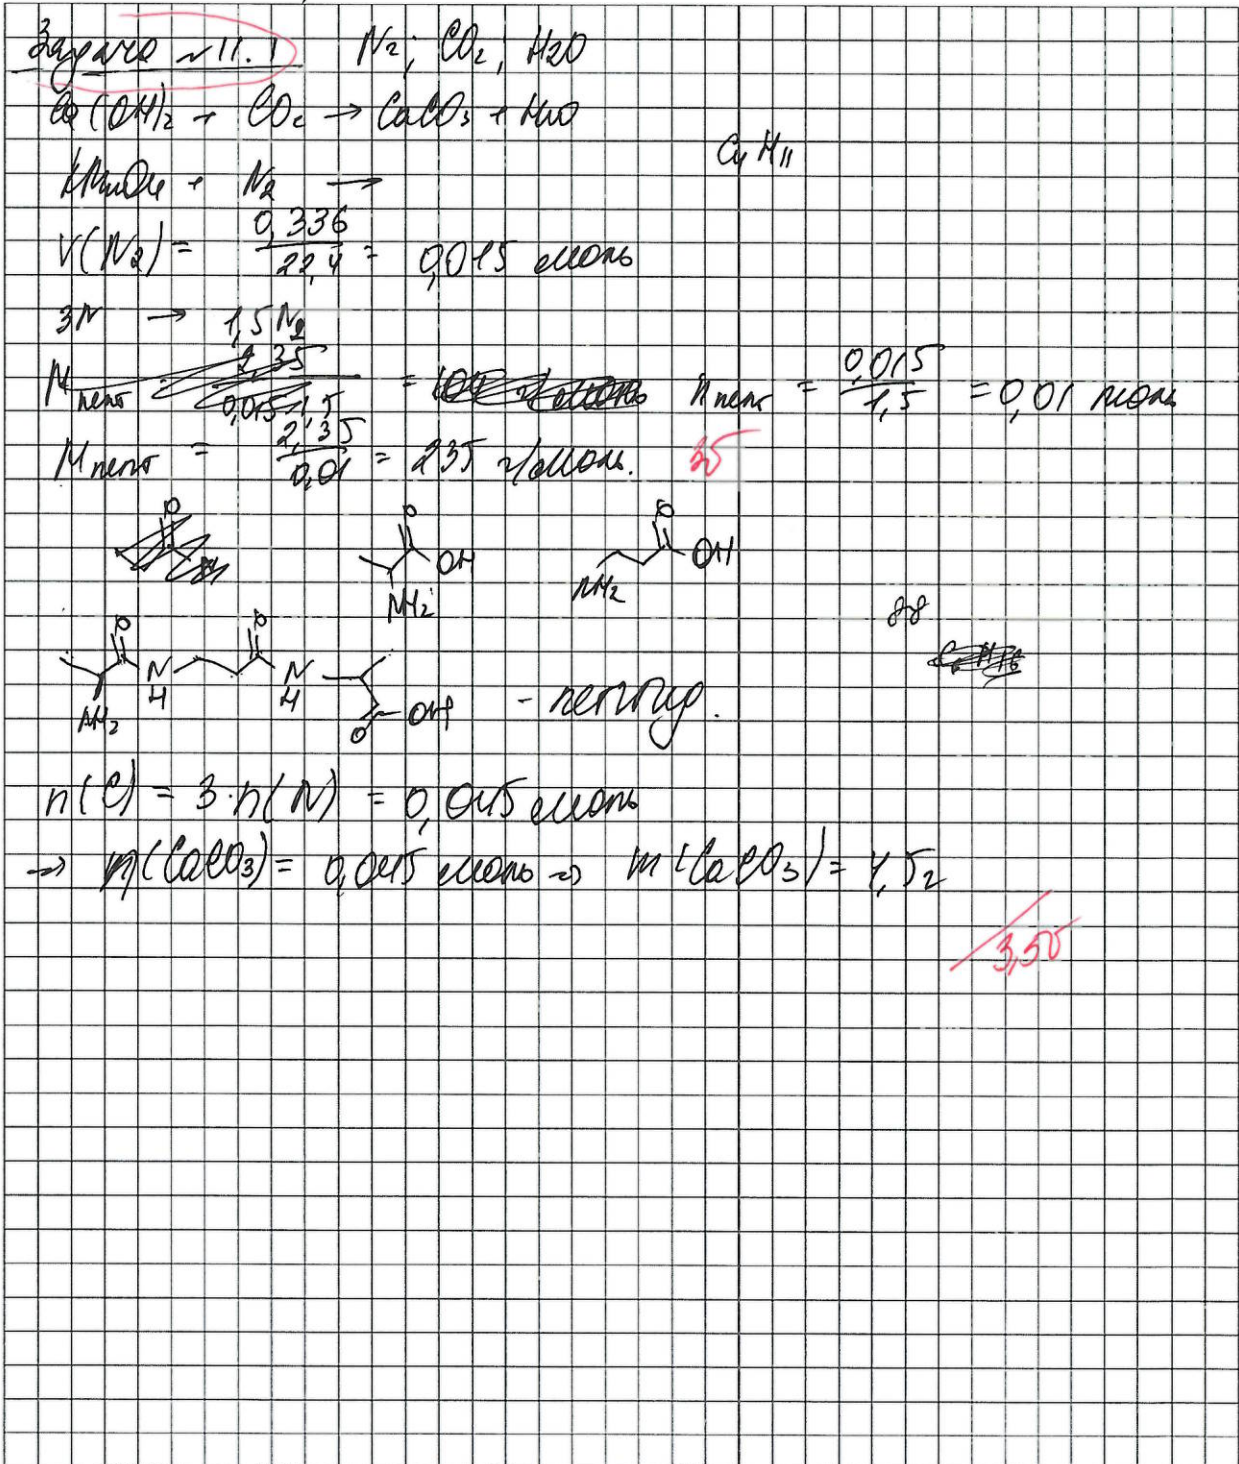 Задача №11.1 N2; CO2; H2O
Ca(OH)2 + CO2 → CaCO3 + H2O
C4H11
KMnO4 + N2 →
V(N2) = 0,336/22,4 = 0,015 моль
3N → 1,5N2
nпепт = 0,015/1,5 = 0,01 моль
Mпепт = 2,35/0,01 = 235 г/моль. 3б
O OH NH2 O OH NH2
O N H O N H NH2 O OH - пептид.
n(C) = 3·n(N) = 0,045 моль
→ n(CaCO3) = 0,045 моль → m(CaCO3) = 4,5г
3,5б